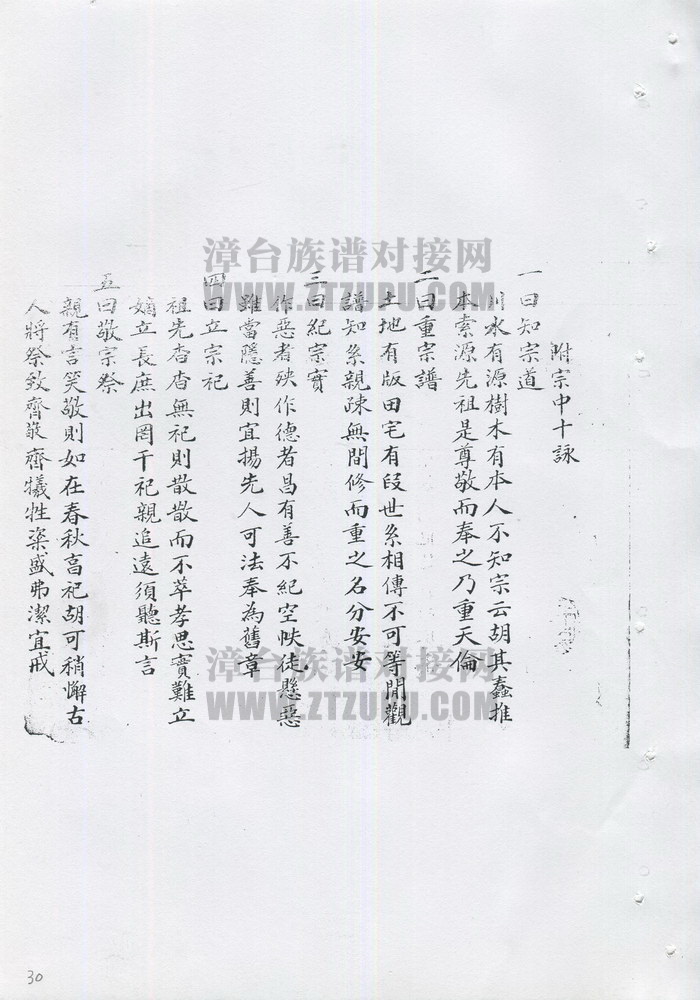 附宗中十詠
一曰知宗道
川水有源樹木有本人不知宗云胡其蠢推
本索源先祖是尊敬而奉之乃重天倫
二曰重宗譜
土地有版田宅有段世系相傳不可等閒觀
譜知系親疎無間修而重之名分安安
三曰紀宗實
作惡者殃作德者昌有善不紀空帙徒懸惡
雖當隱善則宜揚先人可法奉為舊章
四曰立宗祀
祖先杳杳無祀則散散而不萃孝思實難立
嫡立長庶出罔干祀親追遠須聽斯言
五曰敬宗祭
親有言笑敬則如在春秋享祀胡可稍懈古
人將祭致齊散齊犧牲粢盛弗潔宜戒
漳台族谱对接网
WWW.ZTZUPU.COM
漳台族谱对接网
WWW.ZTZUPU.COM
30